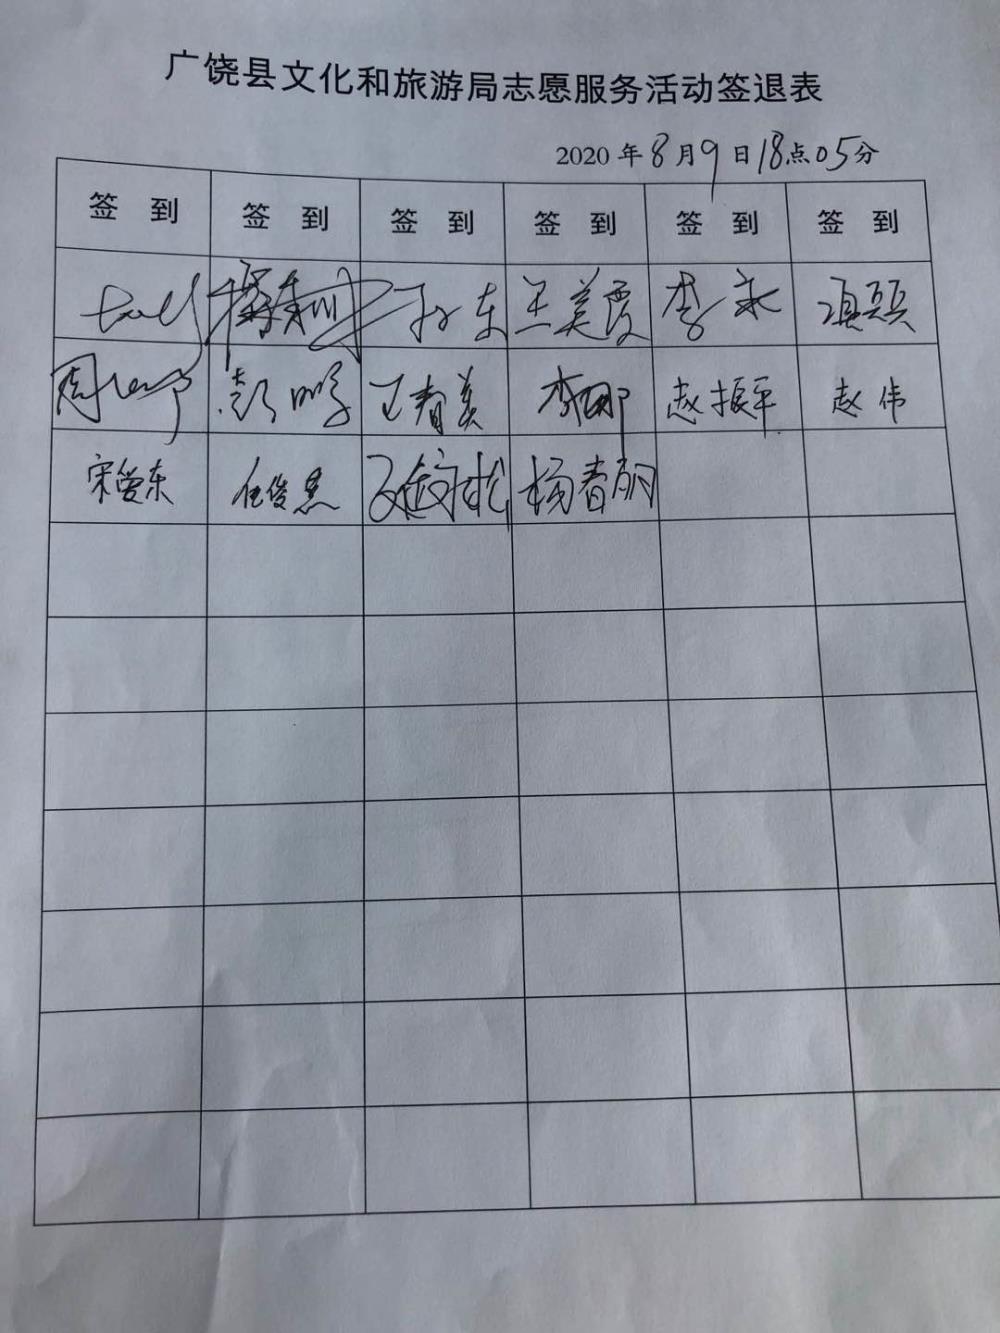 广饶县文化和旅游局志愿服务活动签退表
2020年8月9日18点05分
签 到 签 到 签 到 签 到 签 到 签 到
孙东 王美霞 李永
周 彭鹏 王春美 李娜 赵振平 赵伟
宋爱东 任俊杰 杨春丽